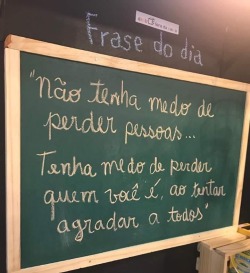 Frase do dia
"Não tenha medo de
perder pessoas...
Tenha medo de perder
quem você é, ao tentar
agradar a todos"